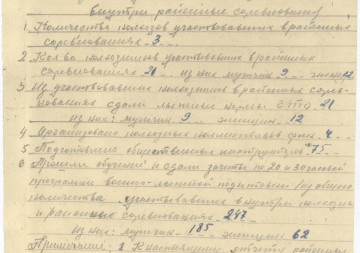 внутри районные соревнования
1. Количество колхозов участвовавших в районных
соревнованиях 3
2. Кол-во колхозников участвовавших в районных
соревнованиях 21 из них мужчин 9 женщин 12
3. Из участвовавших колхозников в районных сорев-
нованиях сдали лыжные нормы ГТО 21
из них: мужчин 9 женщин 12
4. Организовано колхозных коллективов физк. 4
5. Подготовлено общественных инструкторов 75
6. Прошли обучение и сдали зачеты по 20 и 30 часовой
программе военно-лыжной подготовки из общего
количества участвовавших в внутри колхозных
и районных соревнованиях 247
из них: мужчин 185 женщин 62
Примечание: К настоящему отчету